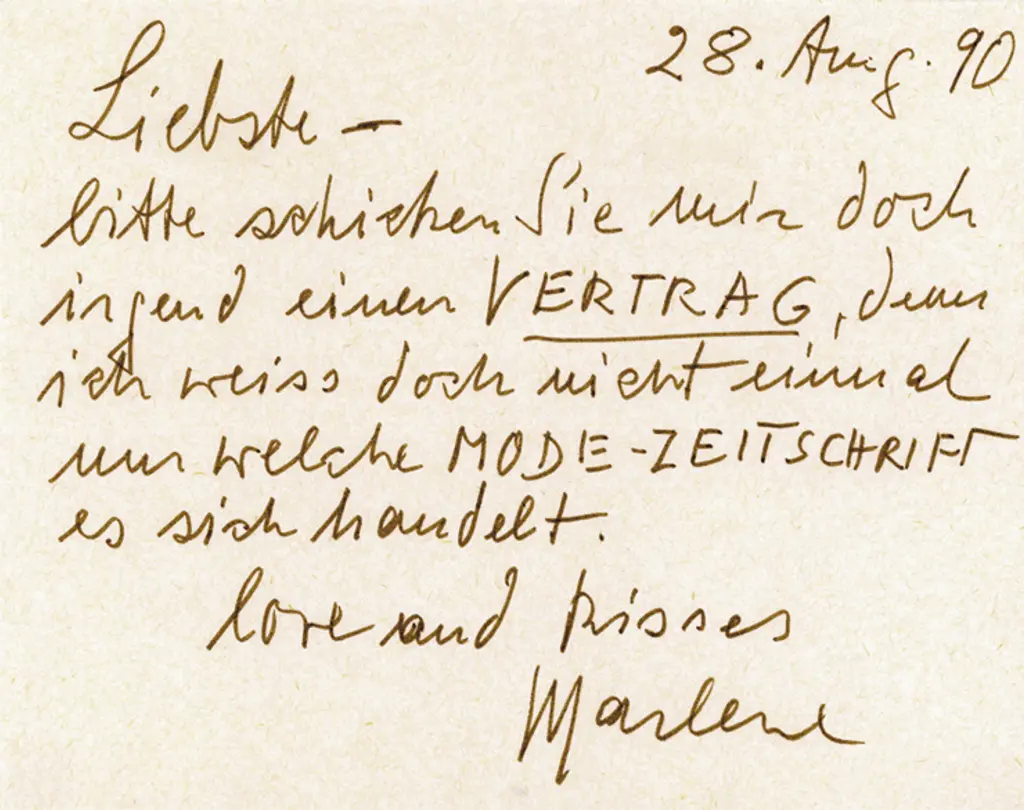 28. Aug. 90
Liebste –
bitte schicken Sie mir doch
irgend einen VERTRAG, denn
ich weiss doch nicht einmal
um welche MODE-ZEITSCHRIFT
es sich handelt.
love and kisses
Marlene